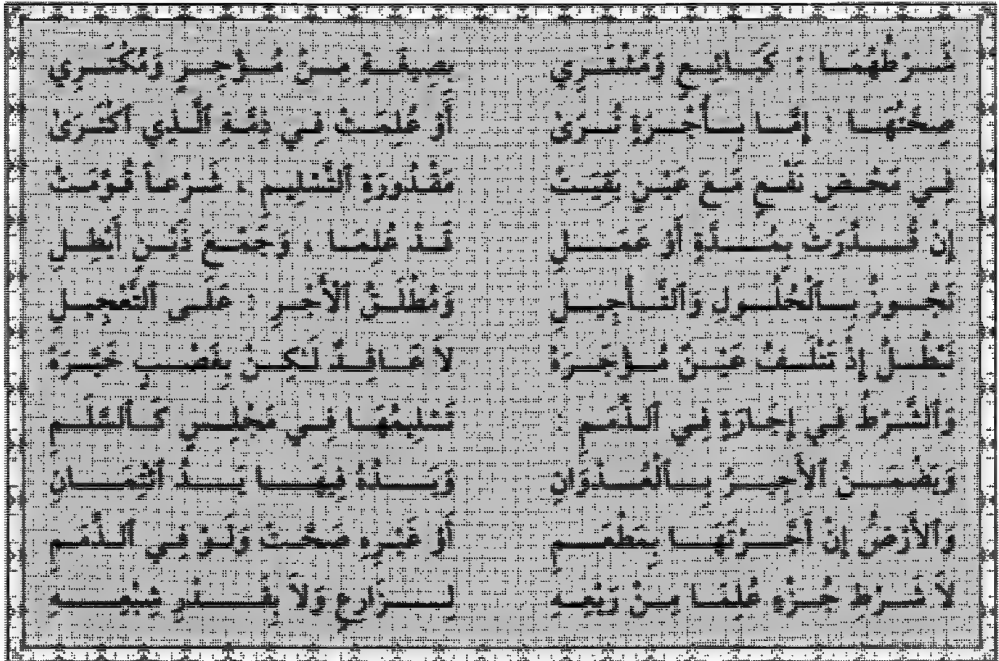 شَرْطُهُمَا : كَبَائِعٍ وَمُشْتَرِي بِصِيغَةٍ مِنْ مُؤْجِرٍ وَمُكْتَرِي
صِحَّتُهَا : إِمَّا بِأُجْرَةٍ تُرَىٰ أَوْ عُلِمَتْ فِي ذِمَّةِ ٱلَّذِي ٱكْتَرَىٰ
فِي مَحْضِ نَفْعٍ مَعَ عَيْنٍ بَقِيَتْ مَقْدُورَةِ ٱلتَّسْلِيمِ ، شَرْعاً قُوِّمَتْ
إِنْ قُدِّرَتْ بِمُدَّةٍ أَوْ عَمَلِ قَدْ عُلِمَا ، وَجَمْعَ ذَيْنِ أَبْطِلِ
تَجُوزُ بِٱلْحُلُولِ وَٱلتَّأْجِيلِ وَمُطْلَقُ ٱلْأَجْرِ : عَلَى ٱلتَّعْجِيلِ
تَبْطُلُ إِذْ تَتْلَفُ عَيْنٌ مُؤْجَرَةْ لَا عَاقِدٌ لَٰكِنْ بِغَصْبٍ خَيَّرَهْ
وَٱلشَّرْطُ فِي إِجَارَةٍ فِي ٱلذِّمَمِ : تَسْلِيمُهَا فِي مَجْلِسٍ كَٱلسَّلَمِ
وَيَضْمَنُ ٱلْأَجِيرُ بِٱلْعُدْوَانِ وَيَدُهُ فِيهَا يَدُ ٱئْتِمَانِ
وَٱلْأَرْضُ إِنْ آجَرْتَهَا بِمَطْعَمِ أَوْ غَيْرِهِ صَحَّتْ وَلَوْ فِي ٱلذِّمَمِ
لَا شَرْطِ جُزْءٍ عُلِمَا مِنْ رَيْعِهِ لِزَارِعٍ وَلَا بِقَدْرِ شِبْعِهِ